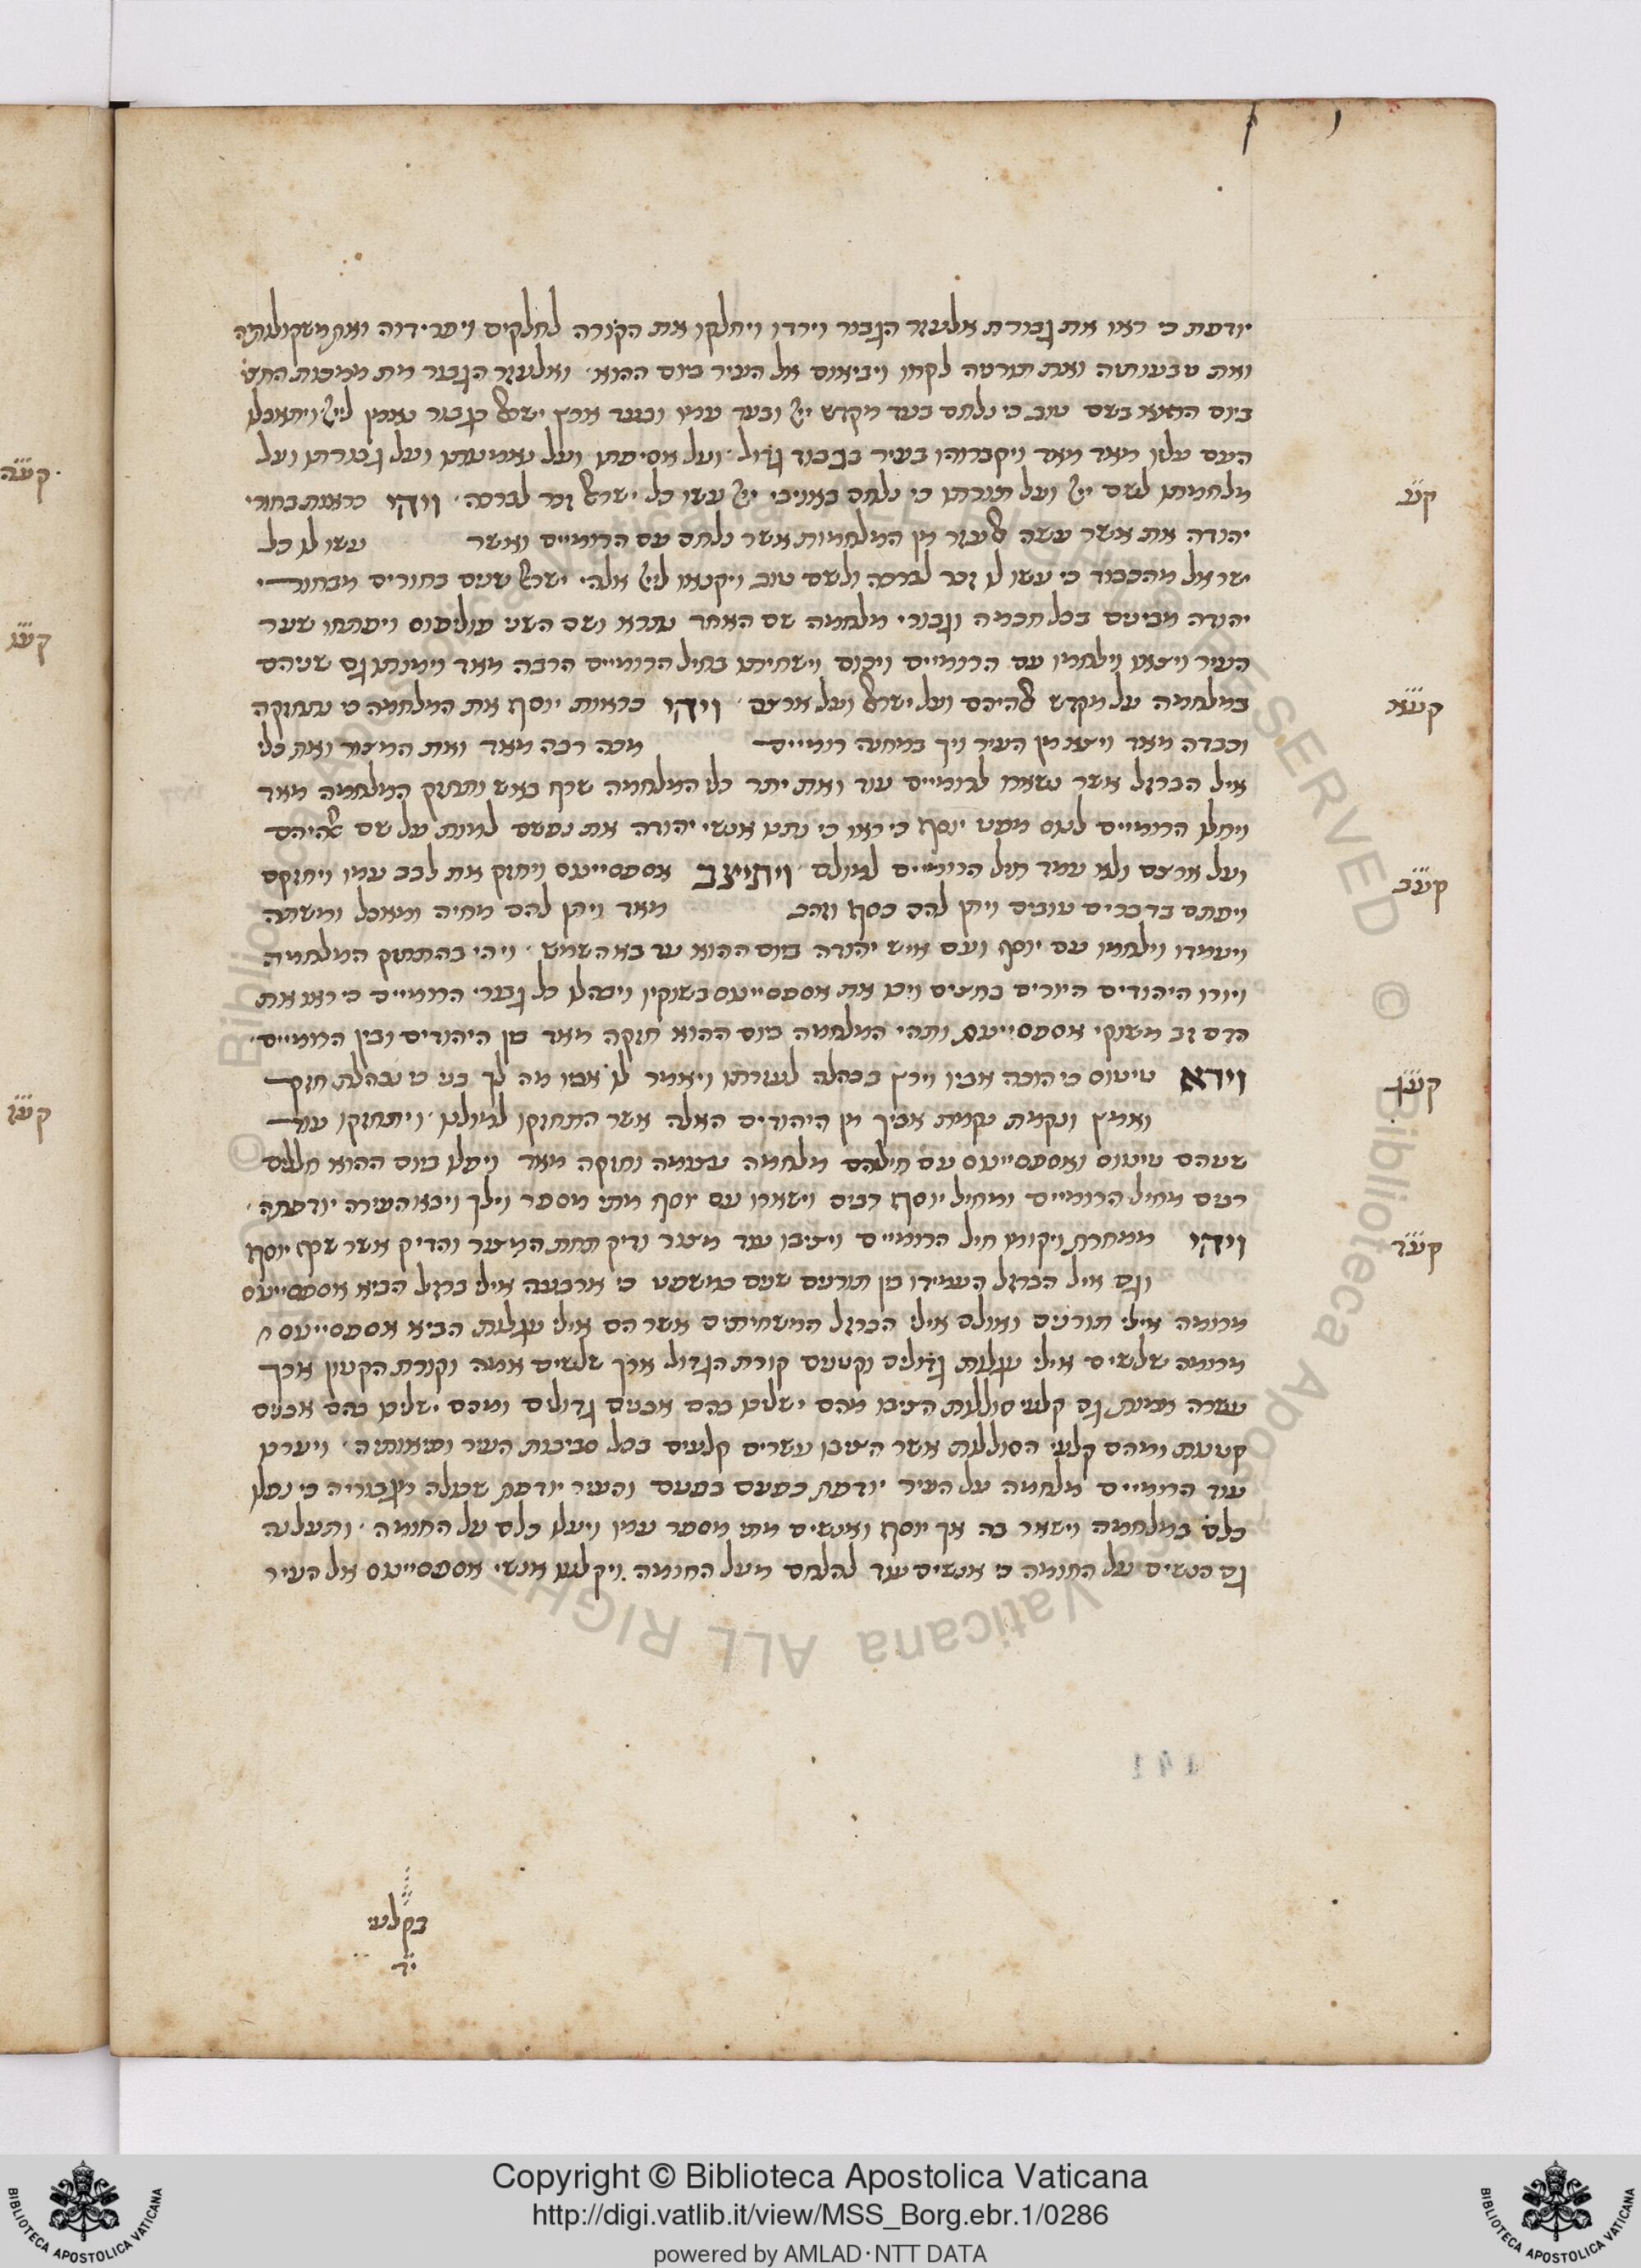 יודפת כי ראו את גבורת אלעזר הגבור וירדו ויחלקו את הקורה לחלקים ויפרידוה ואת משקולותיה
ואת טבעותיה ואת תורניה לקחו ויביאום אל העיר ביום ההוא ואלעזר הגבור מת ממכות החץ
ביום ההוא בשם טוב כי נלחם בעד מקדש ייי ובעד עמו ובעד ארץ ישראל כגבור נאמן לייי ויתאבלו
העם עליו מאד מאד ויקברוהו בעיר בכבוד גדול ועל אסיפתו ועל נאמנותו ועל גבורתו ועל
מלחמתו לשם ייי ועל תורתו כי נלחם באויבי ייי עשו כל ישראל זכר לברכה ויהי כראות בחורי
יהודה את אשר עשה אלעזר מן המלחמות אשר נלחם עם הרומיים ואשר עשו לו כל
ישראל מהכבוד כי עשו לו זכר לברכה ולשם טוב ויקנאו לייי אלהי ישראל שנים בחורים מבחורי
יהודה מבינים בכל חכמה וגבורי מלחמה שם האחד נתרא ושם השני פוליפוס ויפתחו שער
העיר ויצאו וילחמו עם הרומיים ויכום וישחיתו בחיל הרומיים הרבה מאד וימותו גם שניהם
במלחמה על מקדש אלהיהם ועל ישראל ועל ארצם ויהי כראות יוסף את המלחמה כי נתחזקה
וכבדה מאד ויצא מן העיר ויך במחנה רומיים מכה רבה מאד ואת המצור ואת כלי
איל הברזל אשר נשארו לרומיים עוד ואת יתר כלי המלחמה שרף באש ותחזק המלחמה מאד
ויחלו הרומיים לנוס מפני יוסף כי ראו כי נתנו אנשי יהודה את נפשם למות על שם אלהיהם
ועל ארצם ולא עמד חיל הרומיים למולם ויתיצב אספסיינוס ויחזק את לבב עמו ויחזקם
ויפתם בדברים טובים ויתן להם כסף וזהב מאד ויתן להם מחיה ומאכל ומשתה
ויעמדו וילחמו עם יוסף ועם איש יהודה ביום ההוא עד בא השמש ויהי בהתחזק המלחמה
ויורו היהודים היורים בחצים ויכו את אספסיינוס בשוקיו ויבהלו כל גבורי הרומיים כי ראו את
הדם זב משוקי אספסיינוס ותהי המלחמה ביום ההוא חזקה מאד בין היהודים ובין הרומיים
וירא טיטוס כי הוכה אביו וירץ בבהלה לעזרתו ויאמר לו אביו מה לך בני כי נבהלת חזק
ואמץ ונקמת נקמת אביך מן היהודים האלה אשר התחזקו למולינו ויתחזקו עוד
שניהם טיטוס ואספסיינוס עם חילהם מלחמה עצומה וחזקה מאד ויפלו ביום ההוא חללים
רבים מחיל הרומיים ומחיל יוסף רבים וישארו עם יוסף מתי מספר וילך ויבא העירה יודפתה
ויהי ממחרת ויקומו חיל הרומיים ויציבו עוד מצור ודיק תחת המצור והדיק אשר שרף יוסף
וגם איל הברזל העמידו בין תורנים שנים כמשפט כי ארבעה אילי ברזל הביא אספסיינוס
מרומה אילי תורנים ואולם אילי הברזל המשחיתים אשר הם אילי עגלות הביא אספסיינוס
מרומה שלשים אילי עגלות גדולים וקטנים קורת הגדול ארך שלשים אמה וקורת הקטון ארך
עשרה אמות גם קלעי סוללות הציבו מהם ישליכו בהם אבנים גדולים ומהם ישליכו בהם אבנים
קטנות ומהם קלעי הסוללות אשר הציבו עשרים קלעים בכל סביבות העיר ופיאותיה ויערכו
עוד הרומיים מלחמה על העיר יודפת כפעם בפעם והעיר יודפת שכולה מגבוריה כי נפלו
כלם במלחמה וישאר בה אך יוסף ואנשים מתי מספר עמו ויעלו כלם על החומה ותעלנה
גם הנשים על החומה כי אנשים עוד להלחם מעל החומה ויקלעו אנשי אספסיינוס אל העיר
בקלעי
יד
קע
קעא
קעב
קעג
קעד
קעה
141
Copyright © Biblioteca Apostolica Vaticana
http://digi.vatlib.it/view/MSS_Borg.ebr.1/0286
powered by AMLAD·NTT DATA
BIBLIOTECA APOSTOLICA VATICANA
BIBLIOTECA APOSTOLICA VATICANA